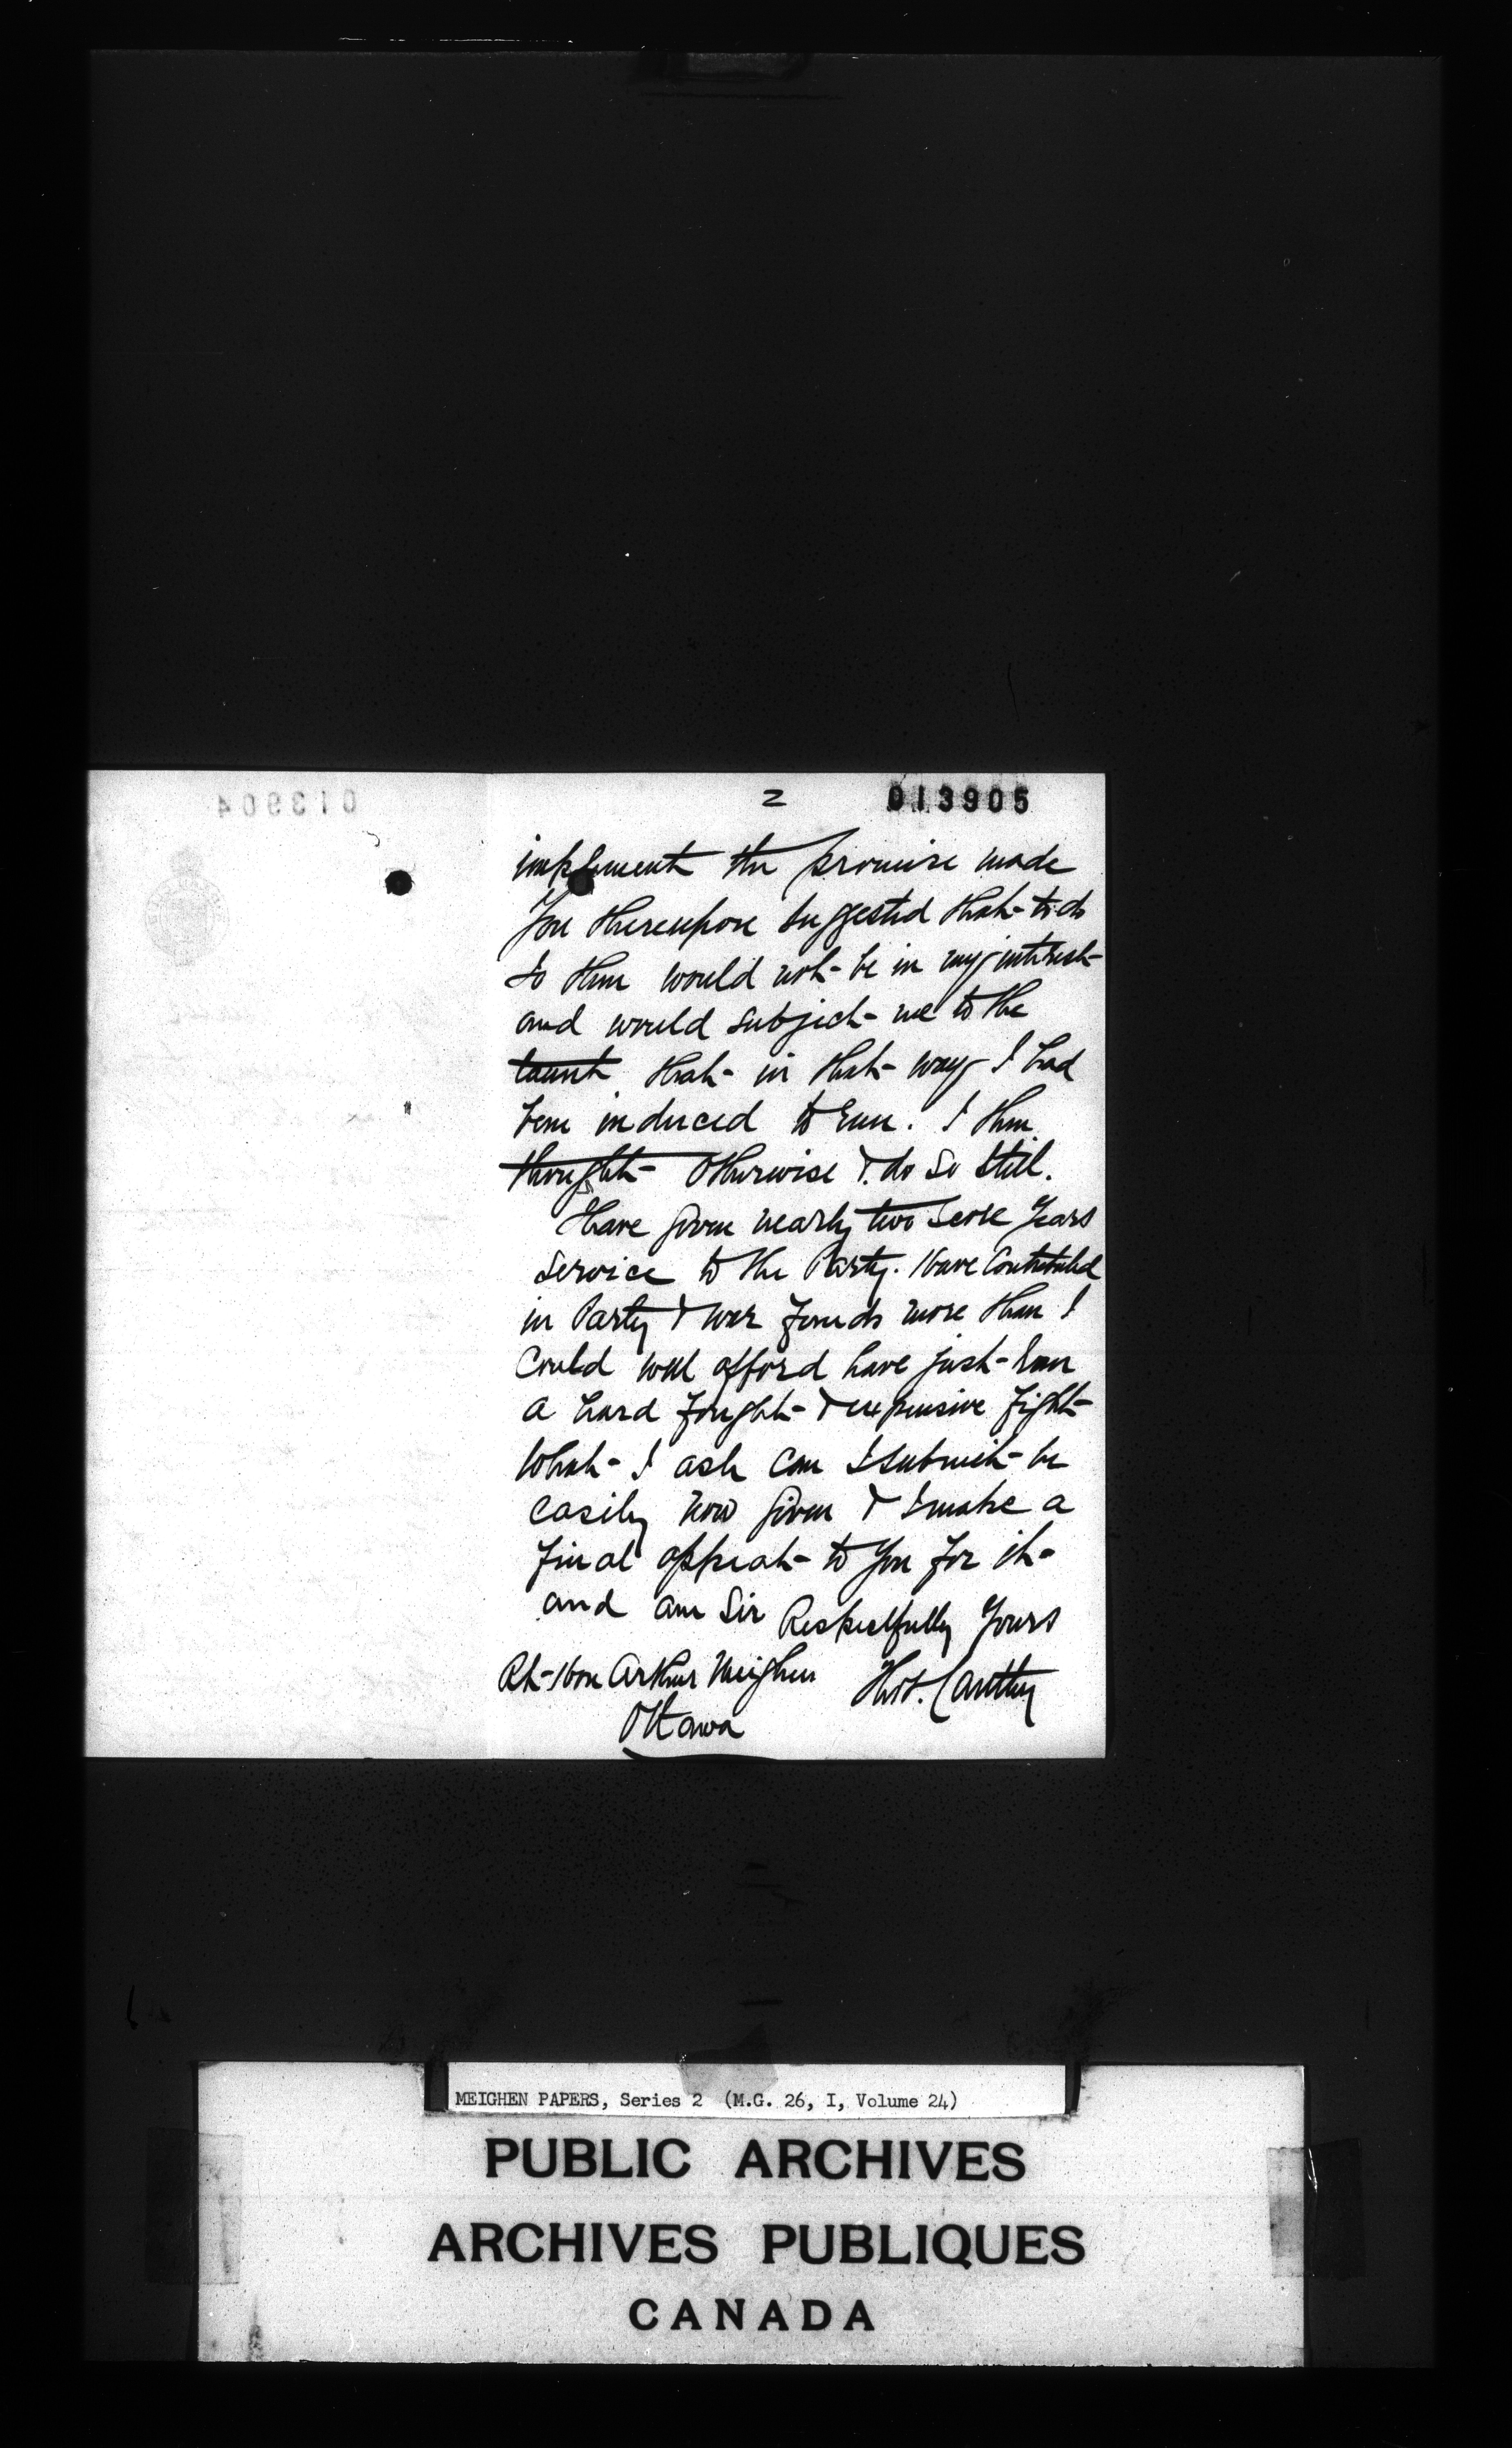 2
013905
013904
implement the promise made
You thereupon suggested that to do
so then would not be in my interest
and would subject me to the
taunt that in that way I had
been induced to run. I then
thought Otherwise & do so still.
Have given nearly two score years
service to the Party. Have Contributed
in Party & war funds more than I
could well afford have just run
a hard fought & expensive fight
What I ask can I submit be
easily now given & I make a
final appeal to you for it
and am Sir Respectfully Yours
Rt Hon Arthur Meighen Thos. Cantley
Ottawa
MEIGHEN PAPERS, Series 2 (M.G. 26, I, Volume 24)
PUBLIC ARCHIVES
ARCHIVES PUBLIQUES
CANADA